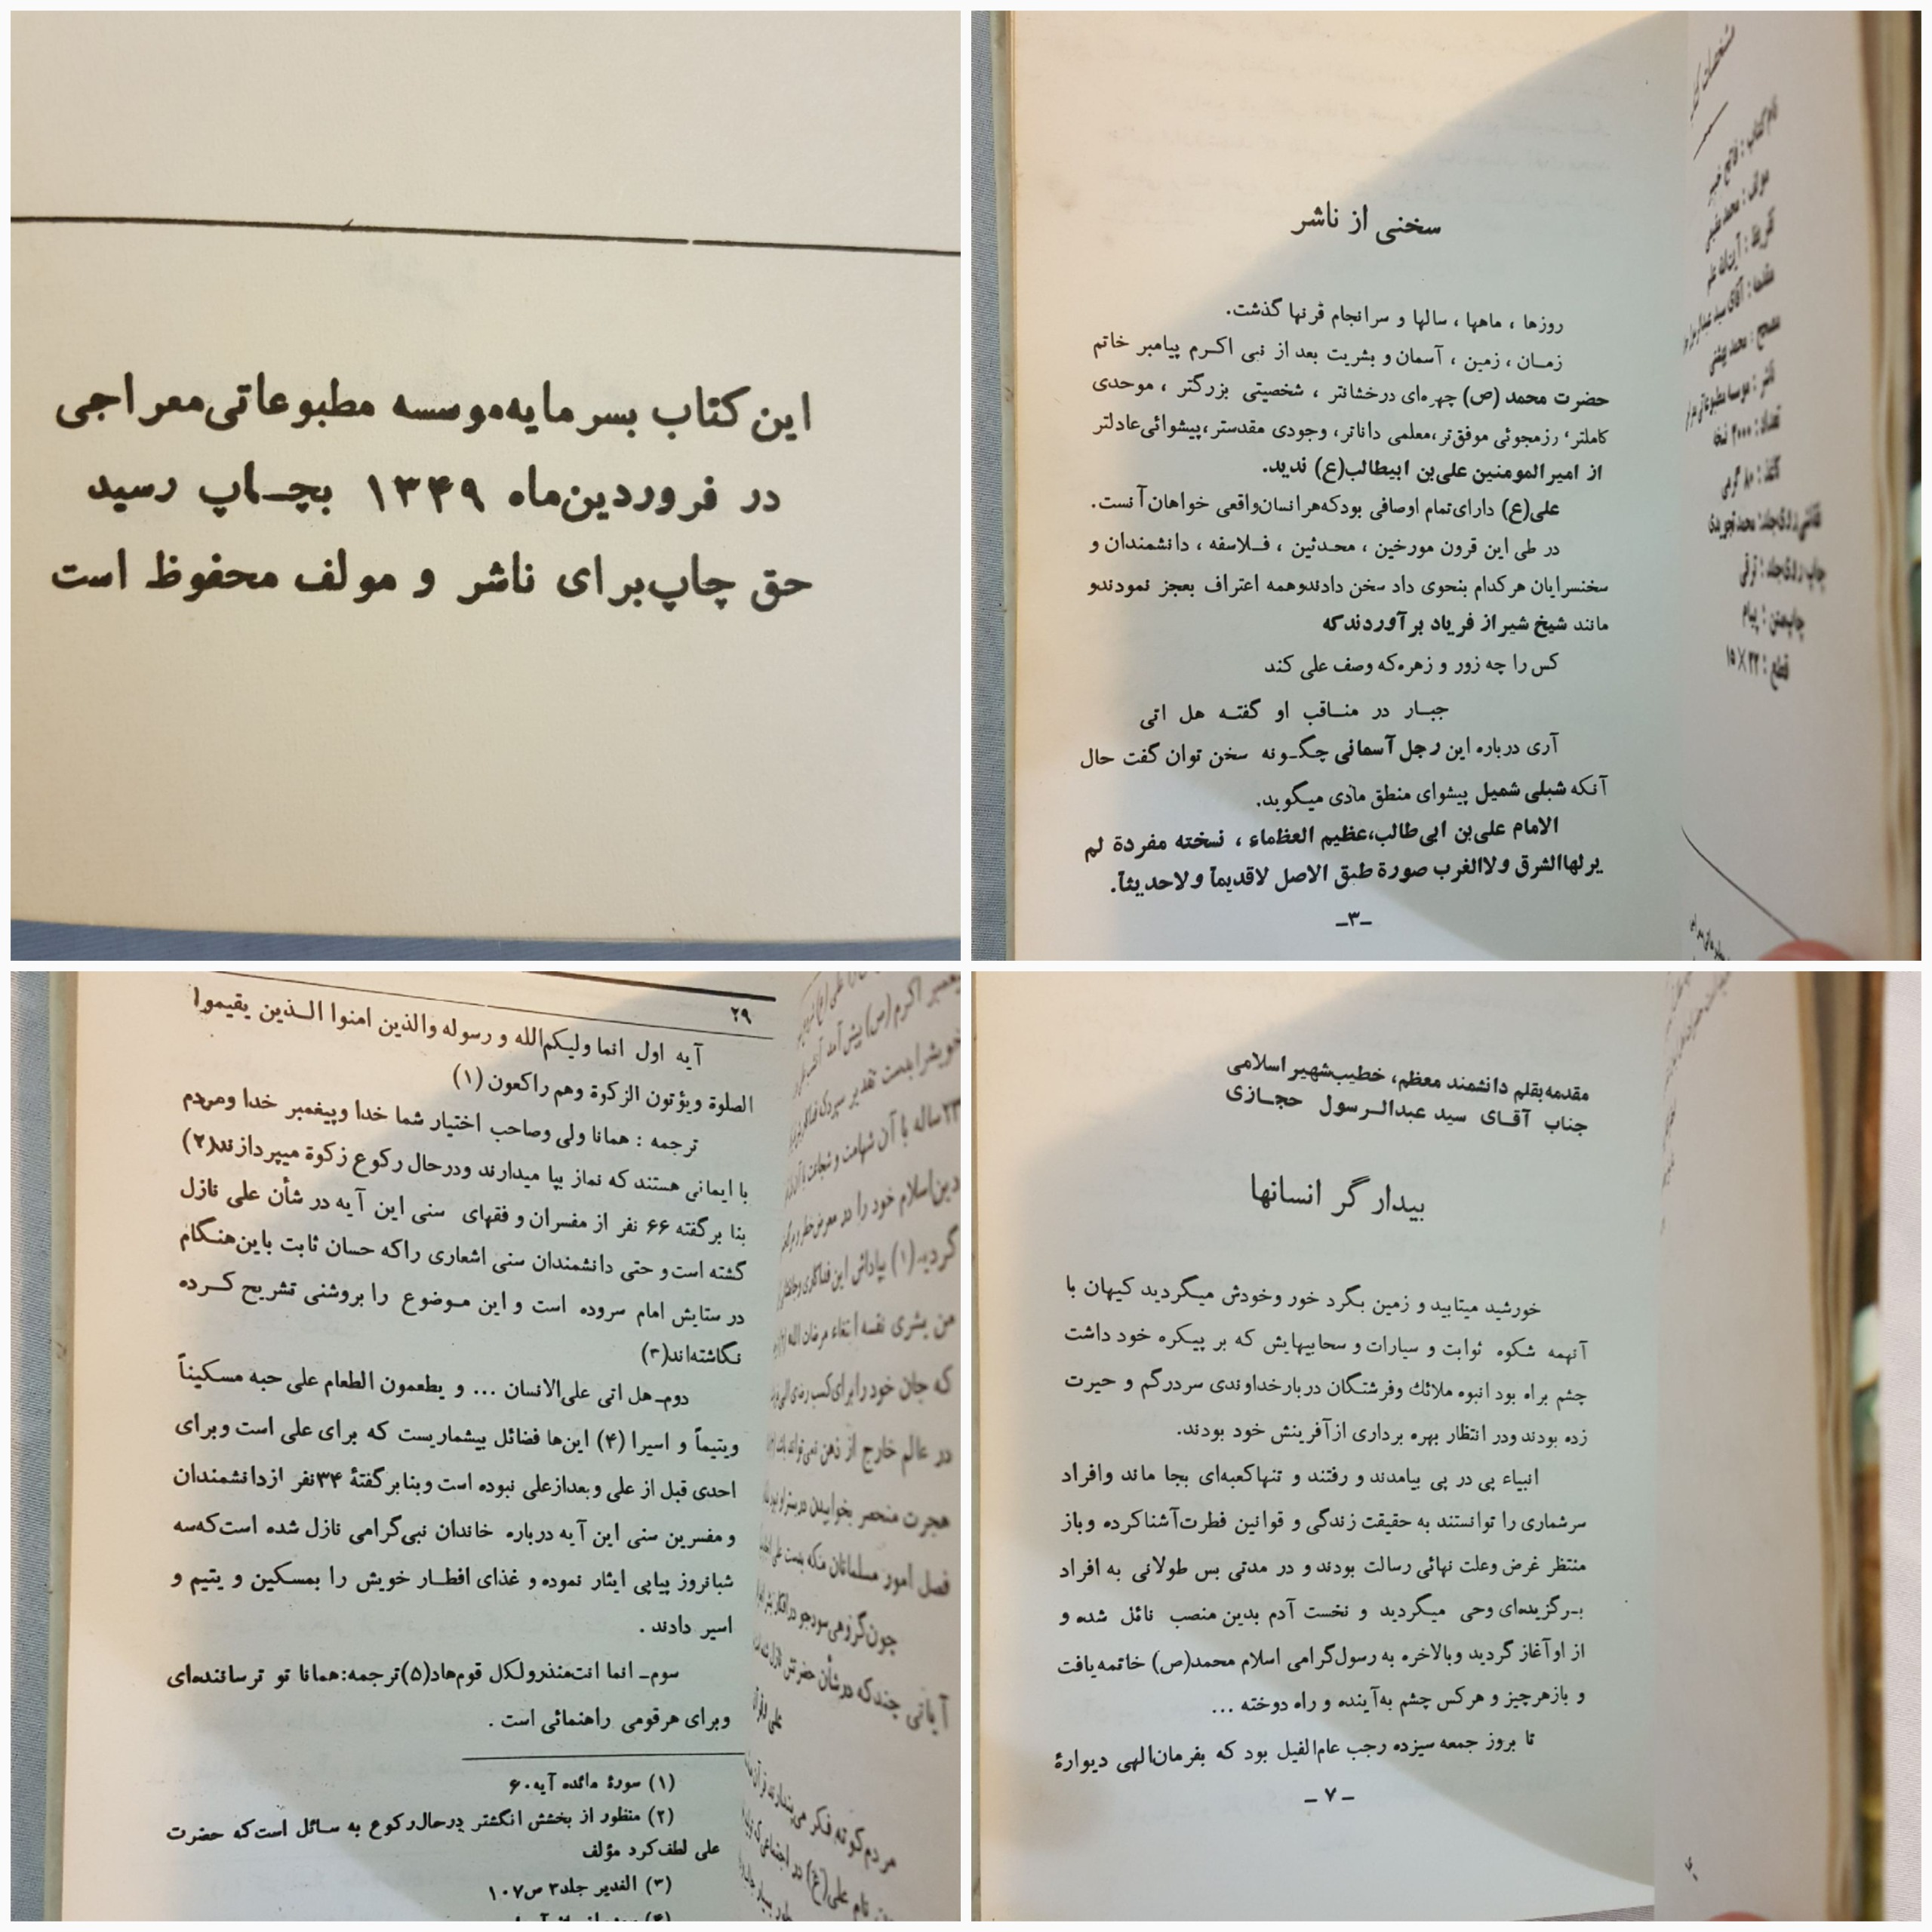 این کتاب بسرمایه موسسه مطبوعاتی معراجی
در فروردین‌ماه ۱۳۴۹ بچاپ رسید
حق چاپ برای ناشر و مولف محفوظ است
سخنی از ناشر
روزها ، ماهها ، سالها و سرانجام قرنها گذشت.
زمان ، زمین ، آسمان و بشریت بعد از نبی اکرم پیامبر خاتم
حضرت محمد (ص) چهره‌ای درخشانتر ، شخصیتی بزرگتر ، موحدی
کاملتر، رزمجوئی موفق‌تر، معلمی داناتر، وجودی مقدستر، پیشوائی عادلتر
از امیرالمومنین علی‌بن ابیطالب(ع) ندید.
علی(ع) دارای تمام اوصافی بود که هر انسان واقعی خواهان آنست.
در طی این قرون مورخین ، محدثین ، فلاسفه ، دانشمندان و
سخنسرایان هر کدام بنحوی داد سخن دادند و همه اعتراف بعجز نمودند و
مانند شیخ شیراز فریاد برآوردند که
کس را چه زور و زهره که وصف علی کند
جبار در مناقب او گفته هل اتی
آری درباره این رجل آسمانی چگونه سخن توان گفت حال
آنکه شبلی شمیل پیشوای منطق مادی میگوید.
الامام علی‌بن ابی‌طالب، عظیم العظماء ، نسخته مفردة لم
یرلها الشرق ولا الغرب صورة طبق الاصل لاقدیماً ولاحدیثاً.
-۳-
نام کتاب : فاتح خیبر
کاغذ : ۸۰ گرمی
چاپ متن : پیام
قطع : ۲۲×۱۵
۲۹
آیه اول انما ولیکم الله و رسوله والذین امنوا الذین یقیموا
الصلوة ویؤتون الزکوة وهم راکعون (۱)
ترجمه : همانا ولی وصاحب اختیار شما خدا وپیغمبر خدا ومردم
با ایمانی هستند که نماز بپا میدارند ودرحال رکوع زکوة میپردازند(۲)
بنا برگفته ۶۶ نفر از مفسران و فقهای سنی این آیه در شأن علی نازل
گشته است و حتی دانشمندان سنی اشعاری راکه حسان ثابت باین هنگام
در ستایش امام سروده است و این موضوع را بروشنی تشریح کرده
نگاشته‌اند(۳)
دوم- هل اتی علی‌الانسان ... و یطعمون الطعام علی حبه مسکیناً
ویتیماً و اسیرا (۴) این‌ها فضائل بیشماریست که برای علی است وبرای
احدی قبل از علی و بعدازعلی نبوده است وبنابرگفتهٔ ۳۴نفر ازدانشمندان
و مفسرین سنی این آیه درباره خاندان نبی‌گرامی نازل شده است‌که‌سه
شبانروز پیاپی ایثار نموده و غذای افطار خویش را بمسکین و یتیم و
اسیر دادند .
سوم- انما انت‌منذرولکل قوم‌هاد(۵)ترجمه:همانا تو ترساننده‌ای
وبرای هرقومی راهنمائی است .
(۱) سورهٔ مائده آیه۶۰
(۲) منظور از بخشش انگشتر درحال‌رکوع به سائل است‌که حضرت
علی لطف‌کرد مؤلف
(۳) الغدیر جلد۳ ص۱۰۷
مقدمه بقلم دانشمند معظم، خطیب شهیر اسلامی
جناب آقای سید عبدالرسول حجازی
بیدار گر انسانها
خورشید میتابید و زمین بگرد خور وخودش میگردید کیهان با
آنهمه شکوه ثوابت و سیارات و سحابیهایش که بر پیکره خود داشت
چشم براه بود انبوه ملائك وفرشتگان دربارخداوندی سردرگم و حیرت
زده بودند ودر انتظار بهره برداری ازآفرینش خود بودند.
انبیاء پی در پی بیامدند و رفتند و تنهاکعبه‌ای بجا ماند وافراد
سرشماری را توانستند به حقیقت زندگی و قوانین فطرت‌آشناکرده وباز
منتظر غرض وعلت نهائی رسالت بودند و در مدتی بس طولانی به افراد
برگزیده‌ای وحی میگردید و نخست آدم بدین منصب نائل شده و
از اوآغاز گردید وبالاخره به رسول‌گرامی اسلام محمد(ص) خاتمه‌یافت
و بازهرچیز و هرکس چشم به‌آینده و راه دوخته ...
تا بروز جمعه سیزده رجب عام‌الفیل بود که بفرمان‌الهی دیوارهٔ
- ۷ -